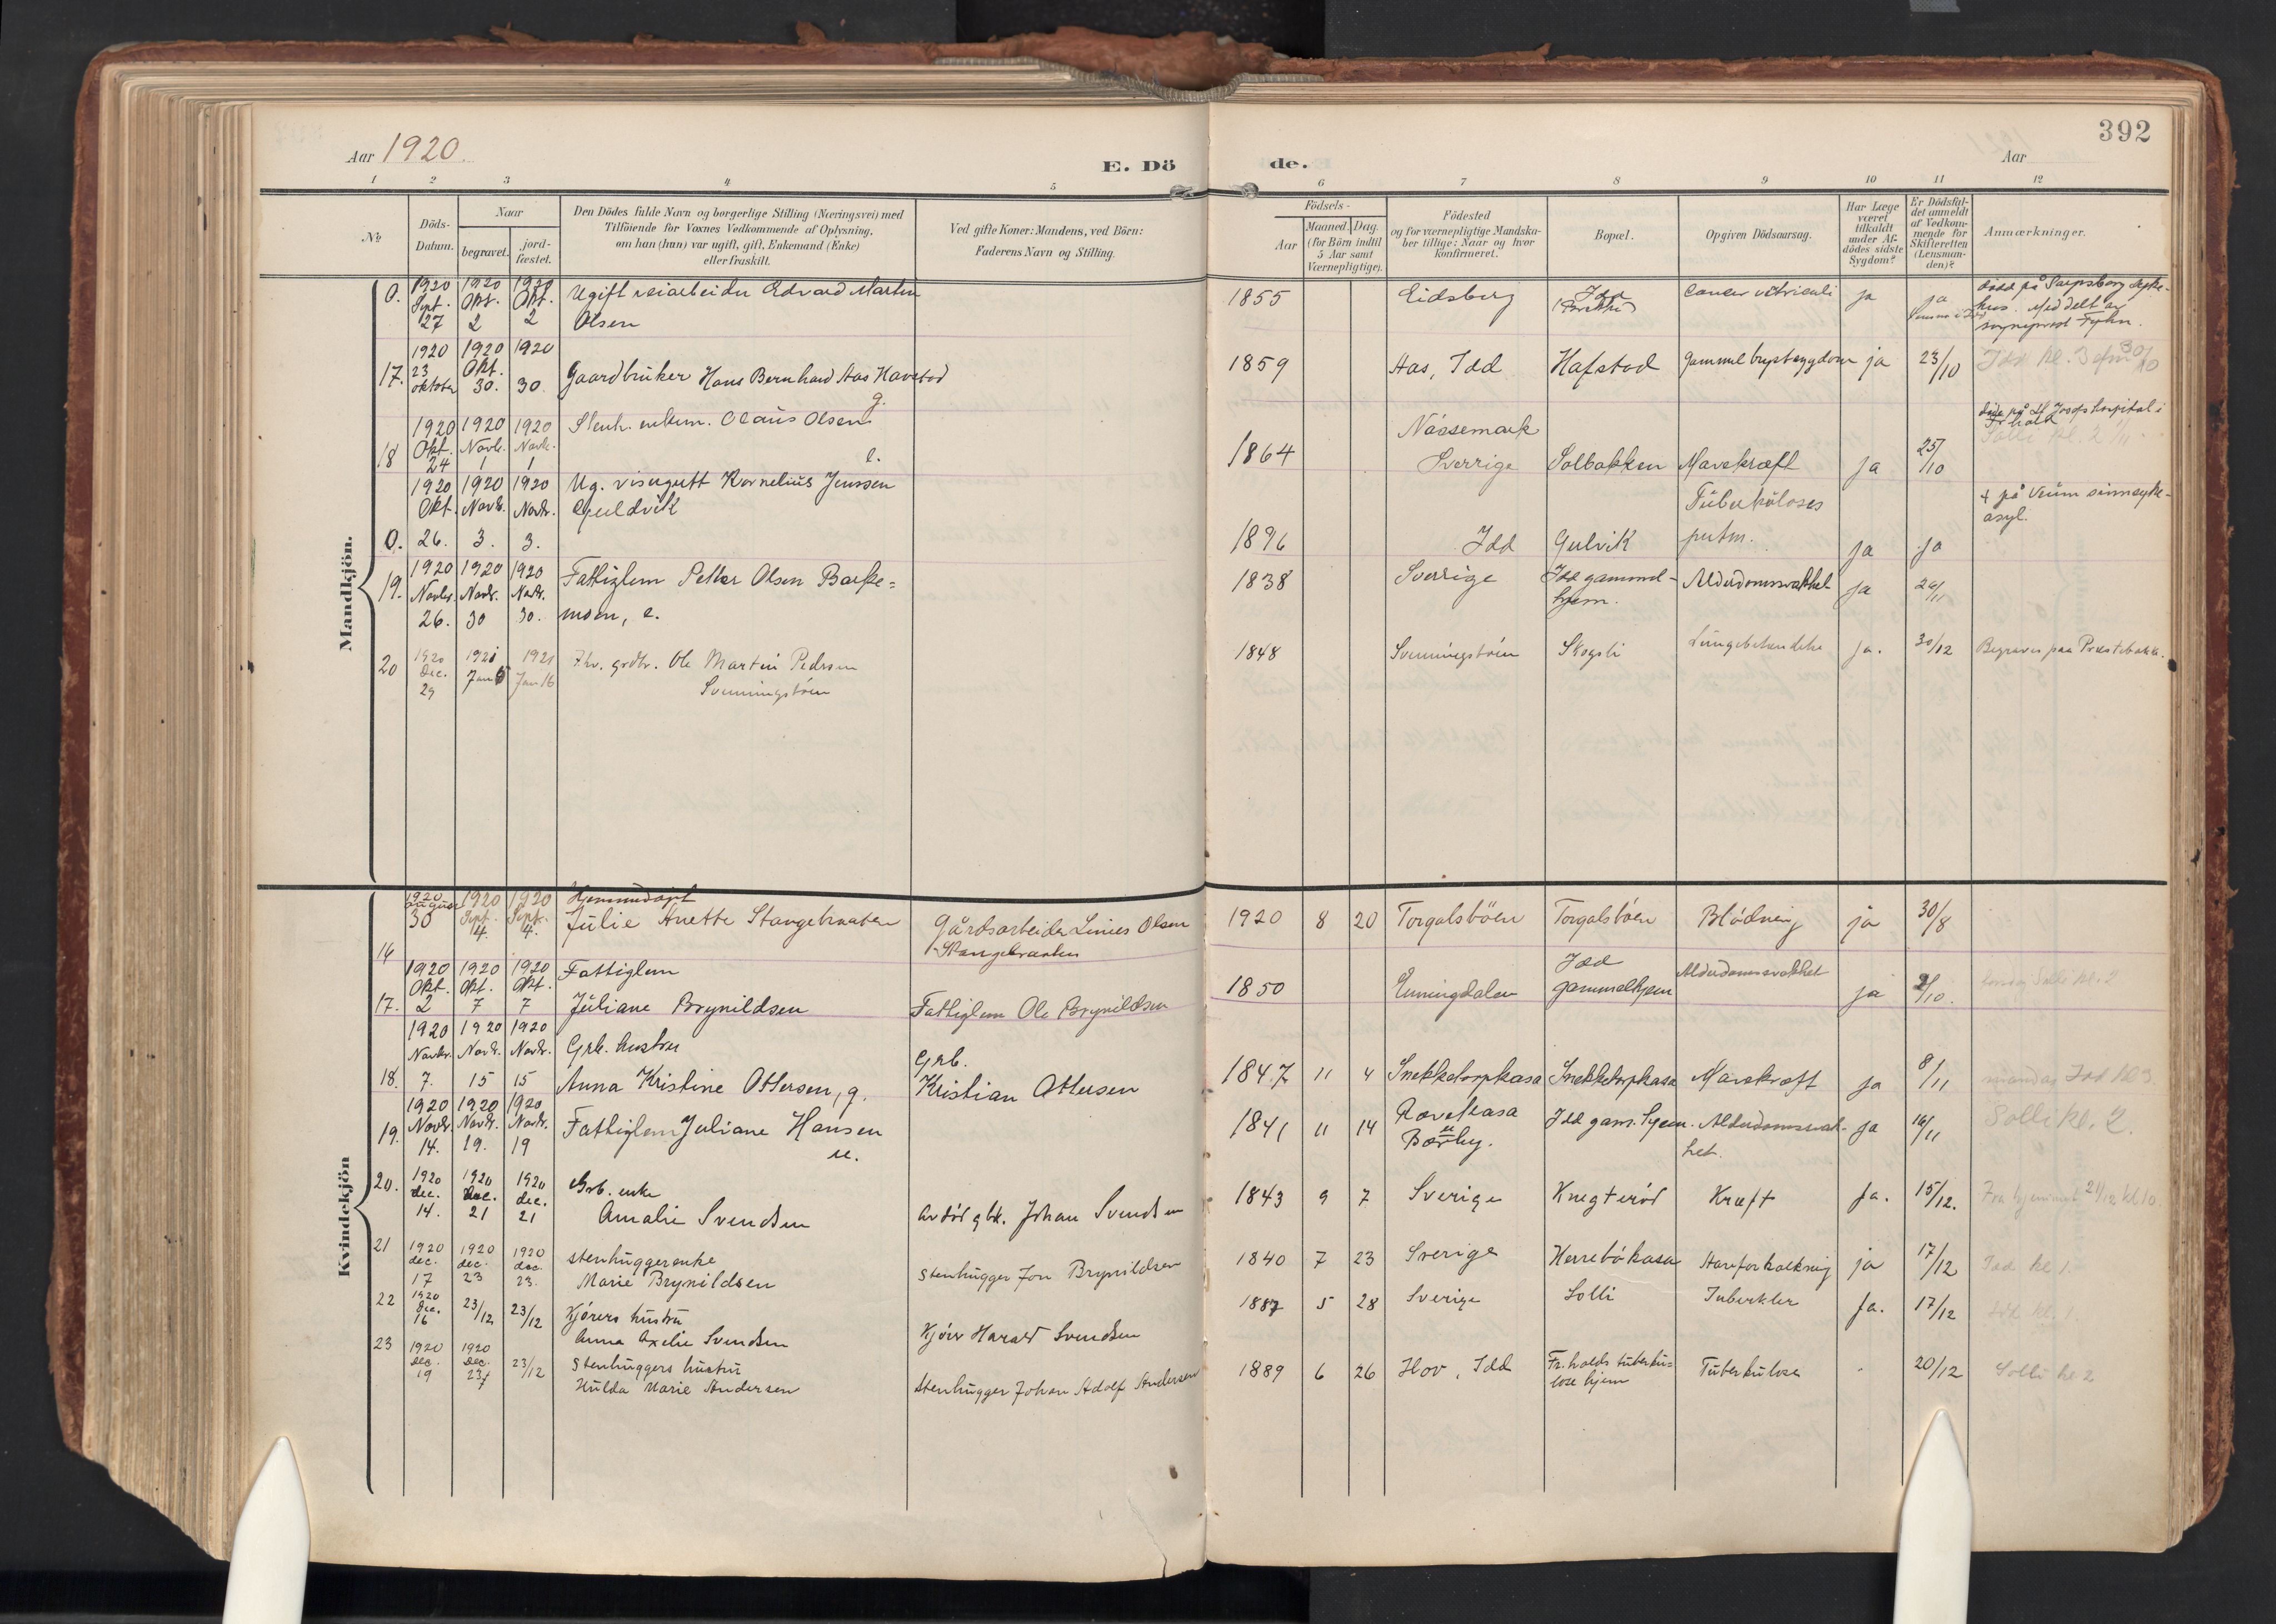 392
Aar 1920.
E. Dö de.
Aar
1 2 3 4 5 6 7 8 9 10 11 12
No
Döds-Datum.
Naar
begravet.
jord-fæstet.
Den Dödes fulde Navn og borgerlige Stilling (Næringsvei) med
Tilföiende for Voxnes Vedkommende af Oplysning,
om han (hun) var ugift, gift, Enkemand (Enke)
eller fraskilt.
Ved gifte Koner: Mandens, ved Börn:
Faderens Navn og Stilling.
Födsels-
Aar
Maaned. Dag.
(for Börn indtil
5 Aar samt
Værnepligtige).
Födested
og for værnepligtige Mandska-
ber tillige: Naar og hvor
konfirmeret.
Bopæl.
Opgiven Dödsaarsag.
Har Læge
været
tilkaldt
under Af-
dödes sidste
Sygdom?
Er Dödsfal-
det anmeldt
af Vedkom-
mende for
Skifteretten
(Lensman-
den)?
Anmærkninger.
Mandkjön.
0. 1920 Sept. 27 1920 Okt. 2 1920 Okt. 2 Ugift veiarbeider Edvard Martin
Olsen
1855 Eidsberg Idd ja ja
död på Sarpsborg syke-
hus. Meddelt av
sogneprest Fyhn.
17. 1920 23 oktober 1920 Okt. 30. 1920 30. Gaardbruker Hans Bernhard Aas Havstad
g.
1859 Aas, Idd Hafstad Gammel brystsygdom ja 23/10 Idd kl. 3 30/10
18 1920 Okt. 24 1920 Novb. 1 1920 Novb. 1 Stenh. enkem. Olaus Olsen
e.
1864 Nössemark
Sverrige Solbakken Mavekræft ja 25/10
döde på St Josefs hospital i
Fr hald
Solli kl. 2
0. 1920 Okt. 26. 1920 Novb. 3. 1920 Novbr. 3. Ug. visergutt Kornelius Jenssen
Guldvik
1896 Idd Gulvik Tuberkuloses
pulm. ja ja
+ på Veum sinnsyke-
asyl.
19. 1920 Novbr. 26. 1920 Novbr. 30 1920 Novbr. 30. Fattiglem Petter Olsen
moen, e.
1838 Sverrige Idd gammel-
hjem. Alderdomssvakhet ja
20 1920 Dec. 29 1921 Jan 1921 Jan 16 Fhv. grdbr. Ole Martin Pedersen
Svenningsbøen
1848 Svenningsbøen Skogsli Lungebetændelse ja. 30/12 Begraves paa Prestebakke.
Kvindekjön
16 1920 August 30 1920 Sept. 4. 1920 Sept. 4. Hjemmedøpt
Julie Anette Stangebraaten Gårdsarbeider Linius Olsen
Stangebraaten
1920 8 20 Torgalsböen Torgalsböen Blödning ja 30/8
17. 1920 Okt. 2 1920 Okt. 7 1920 Okt. 7 Fattiglem
Juliane Brynildsen Fattiglem Ole Brynildsen
1850 Enningdalen Idd
gammelhjem Alderdomssvakhet ja 2/10. Solli kl. 2
18. 1920 Novbr. 7. 1920 Novbr. 15 1920 Novbr. 15 Grb. hustru
Anna Kristine Ottersen, g. Grb.
Kristian Ottersen
1847 11 4 Snekketorpkasa Snekketorpkasa Mavekræft ja 8/11 mandag Idd kl 3.
19. 1920 Novbr. 14. 1920 Novbr. 19. 1920 Novbr. 19 Fattiglem Juliane Hansen
u.
1841 11 14 Rævekasa
Bærby. Idd gam. hjem. Alderdomssvak-
het. ja 16/11 Solli kl. 2.
20. 1920 dec. 14. 1920 dec. 21 1920 dec. 21 Grb. enke
Amalie Svendsen Avdöd gbk. Johan Svendsen
1843 9 7 Sverige Knegteröd Kræft Ja. 15/12. Fra hjemmet 21/12 kl 10.
21 1920 dec. 17 1920 dec. 23 1920 dec. 23. stenhuggerenke
Marie Brynildsen stenhugger Jon Brynildsen
1840 7 23 Sverige Herrebökasa Aareforkalkning ja 17/12 Idd kl 1.
22 1920 Dec. 16 23/12 23/12 Kjörers hustru
Anna Axelie Svendsen Kjörer Harald Svendsen
1887 5 28 Sverige Solli Tuberkler Ja. 17/12 Idd kl. 1.
23 1920 Dec. 19 1920 Dec. 23 23/12 Stenhuggers hustru
Hulda Marie Andersen Stenhugger Johan Adolf Andersen
1889 6 26 Hov, Idd Fr.halds tuberku-
lose hjem Tuberkulose 20/12 Solli kl 2